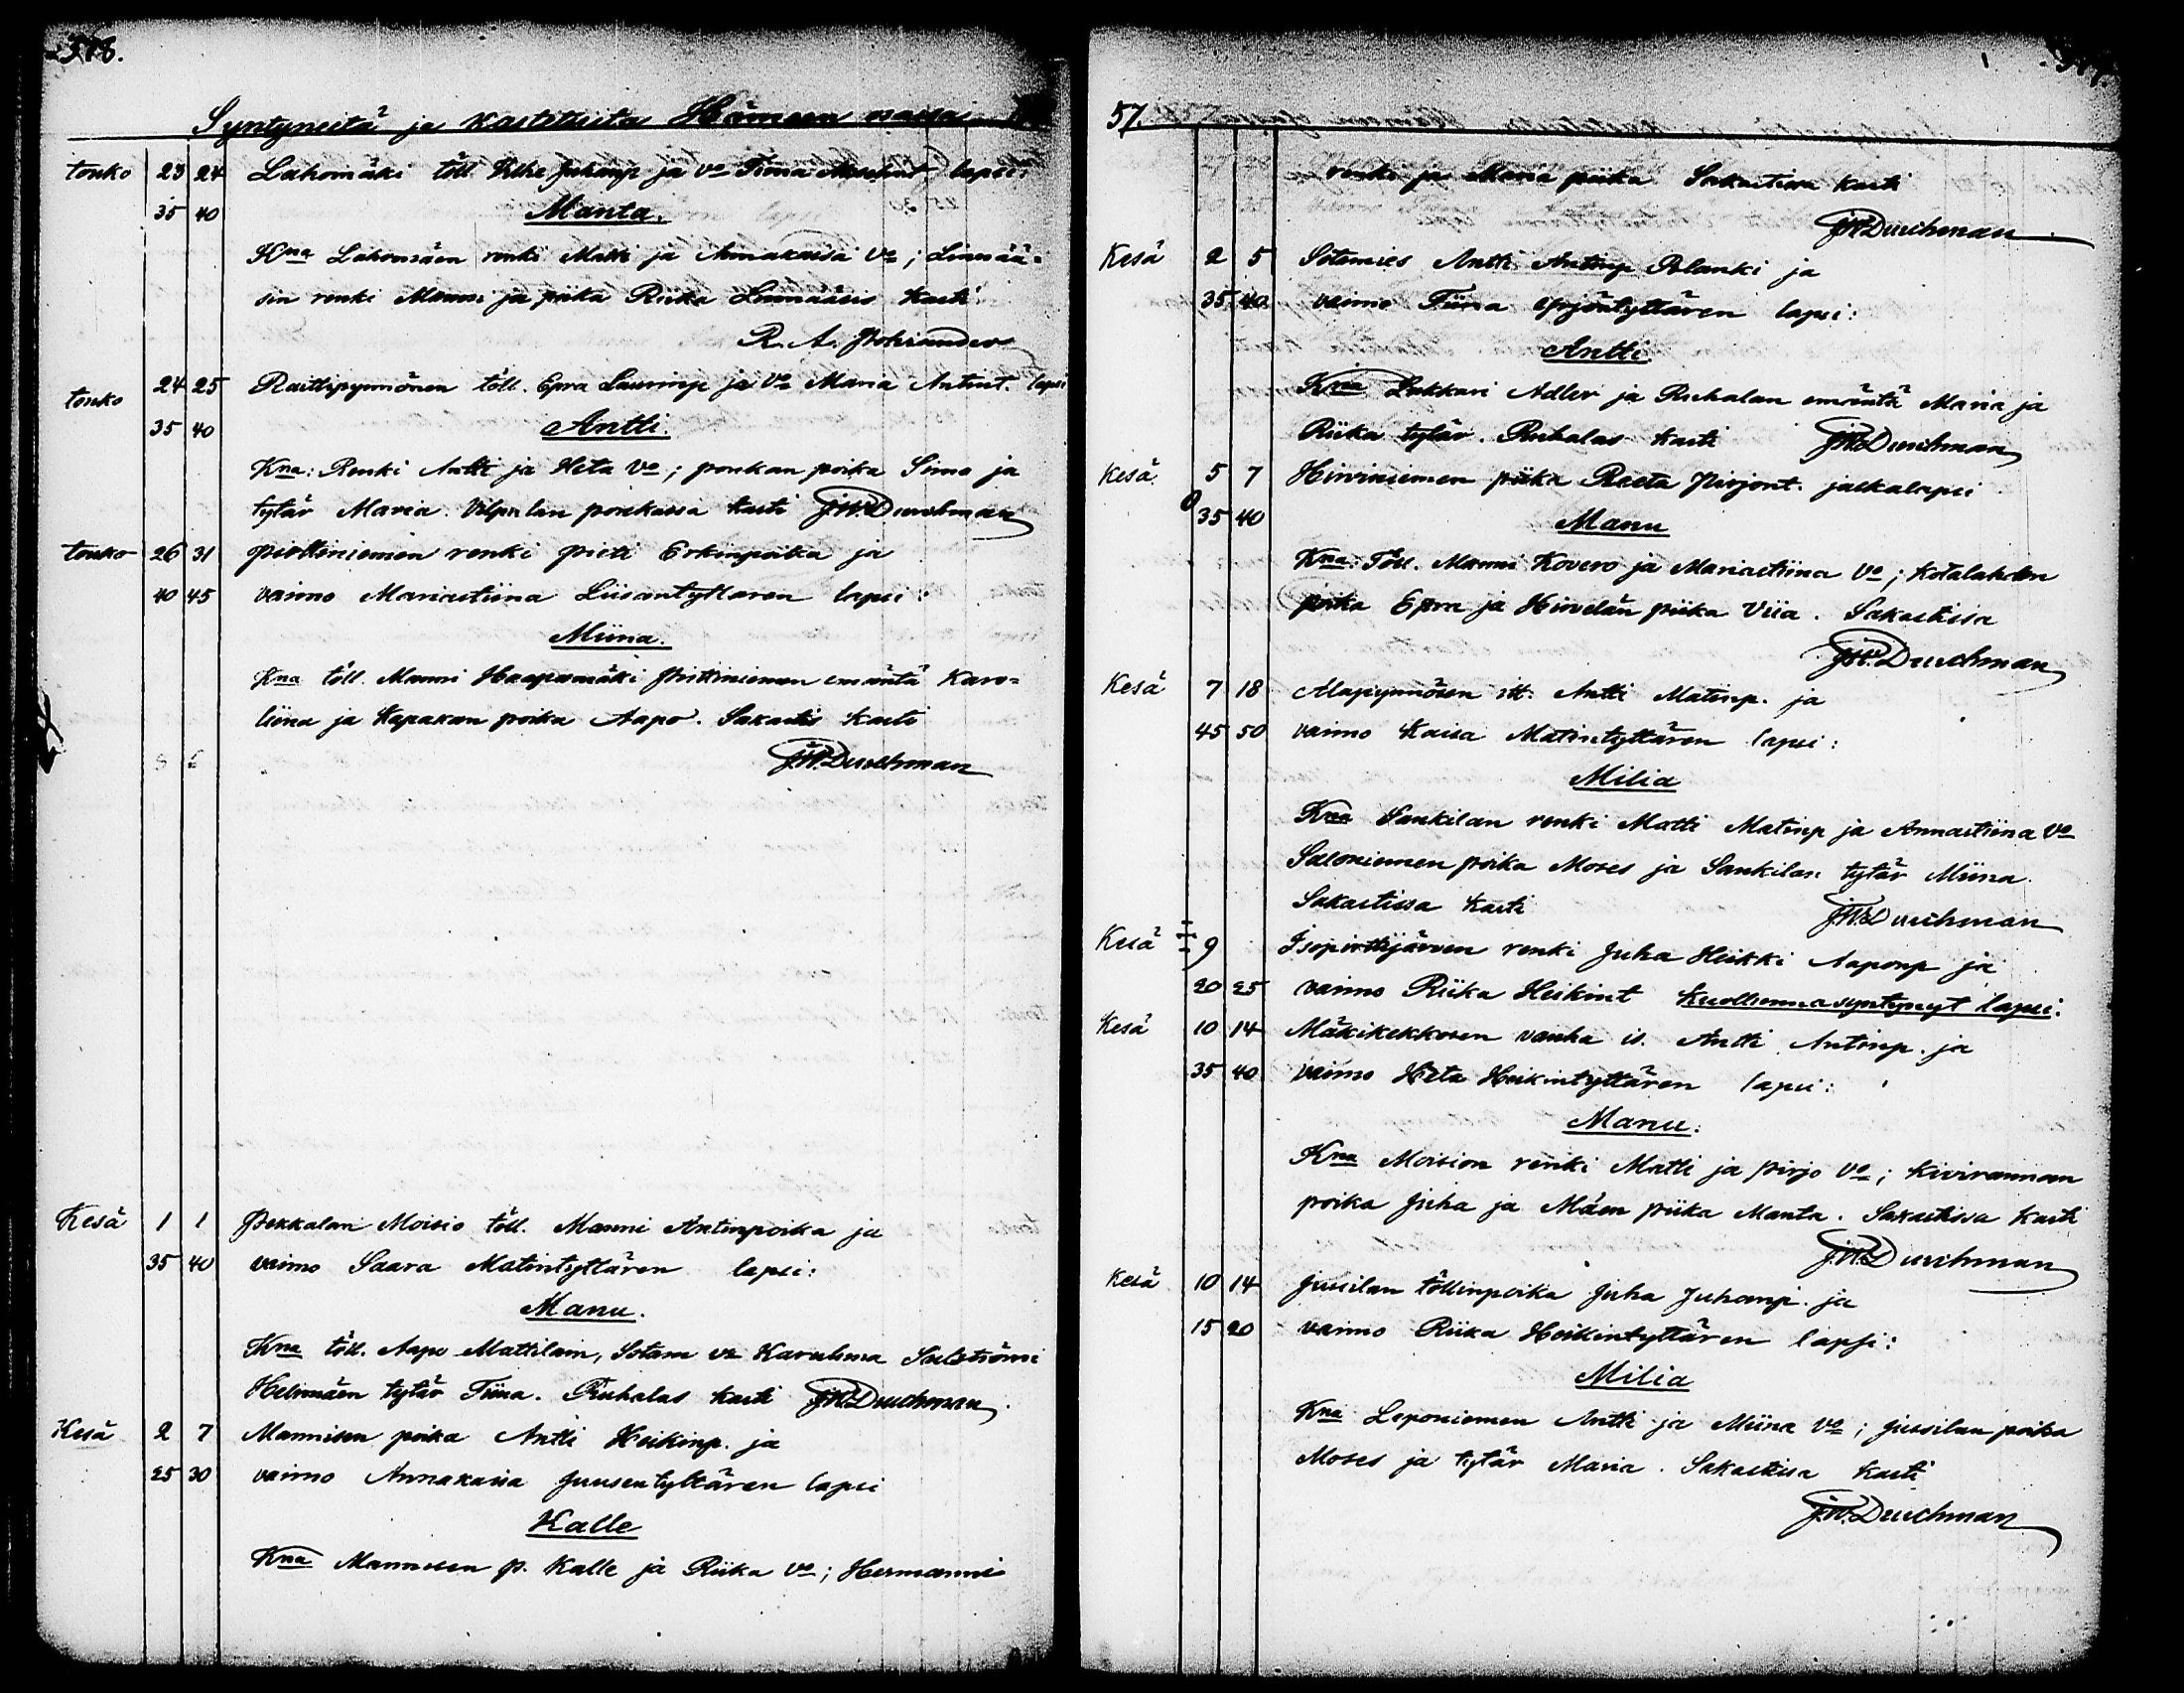 Syntyneitä ja kastetuita Hämeen
touko 23 24 Lahomäki töll. Vilhe Juhanp ja vo Tiina lapsi:
35 40 Manta.
Kna Lahomäen renki Matti ja Annakaisa Vo; Linnää=
sin renki Manu ja piika Riika Linnääsis kasti
R. A.
touko 24 25 Raittipynnönen töll. Epra Laurinp ja Vo Maria Antint. lapsi
35 40 Antti.
Kna: Renki Antti ja Heta Vo; ponkan poika Simo ja
tytär Maria. Vilpulan ponkassa kasti J.W. Durchman
touko 26 31 Pirttiniemen renki Pieti Erkinpoika ja
40 45 vaimo Mariastiina Liisantyttären lapsi:
Miina.
Kna töll. Manni Haapamäki Pirttiniemen emäntä Karo=
liina ja Kapakan poika Aapo. Sakastis kasti
J.W. Durchman
Kesä 1 1 Pekkalan Moisio töll. Manni Antinpoika ja
35 40 vaimo Saara Matintyttären lapsi:
Manu.
Kna töll. Aapo Mattilain, Sotam vo Karuliina
Helinmäen tytär Tiina. Ruhalas kasti J.W. Durchman.
Kesä 2 7 Mannisen poika Antti Heikinp. ja
25 30 vaimo Annakaisa Juusentyttären lapsi
Kalle
Kna Mannisen p. Kalle ja Riika Vo; Hermanni
57.
renki ja Maria piika Sakastissa kasti
J.W. Durchman
Kesä 2 5 Sotamies Antti Antinp Polanki ja
35 40 vaimo Tiina Yrjöntyttären lapsi:
Antti
Kna Lukkari Adler ja Ruhalan emäntä Maria ja
Riika tytär. Ruhalas kasti J.W. Durchman
Kesä 5 7 Hirviniemen piika Reeta Pirjont. jalkalapsi
35 40 Manu
Kna: Töll. Manni Kovero ja Mariastiina Vo; Kotalahden
poika Epra ja Hirvelän piika Viia. Sakastissa
J.W. Durchman
Kesä 7 18 Alapynnösen itt. Antti Matinp. ja
45 50 vaimo Kaisa Matintyttären lapsi:
Milia
Kna Sankilan renki Matti Matinp ja Annastiina Vo
Saloniemen poika Moses ja Sankilan tytär Miina.
Sakastissa kasti J.W. Durchman
Kesä 9 Isopirttijärven renki Juha Heikki Aaponp ja
20 25 vaimo Riika Heikint kuolleenna syntynyt lapsi:
Kesä 10 14 Mäkikekkosen vanha is. Antti Antinp. ja
35 40 vaimo Heta Heikintyttären lapsi:
Manu.
Kna Moision renki Matti ja Pirjo Vo; Kivirannan
poika Juha ja Mäen piika Manta. Sakastissa kasti
J.W. Durchman
Kesä 10 14 Jussilan töllinpoika Juha Juhanp. ja
15 20 vaimo Riika Heikintyttären lapsi:
Milia
Kna Leponiemen Antti ja Miina Vo; Jussilan poika
Moses ja tytär Maria. Sakastissa kasti
J.W. Durchman